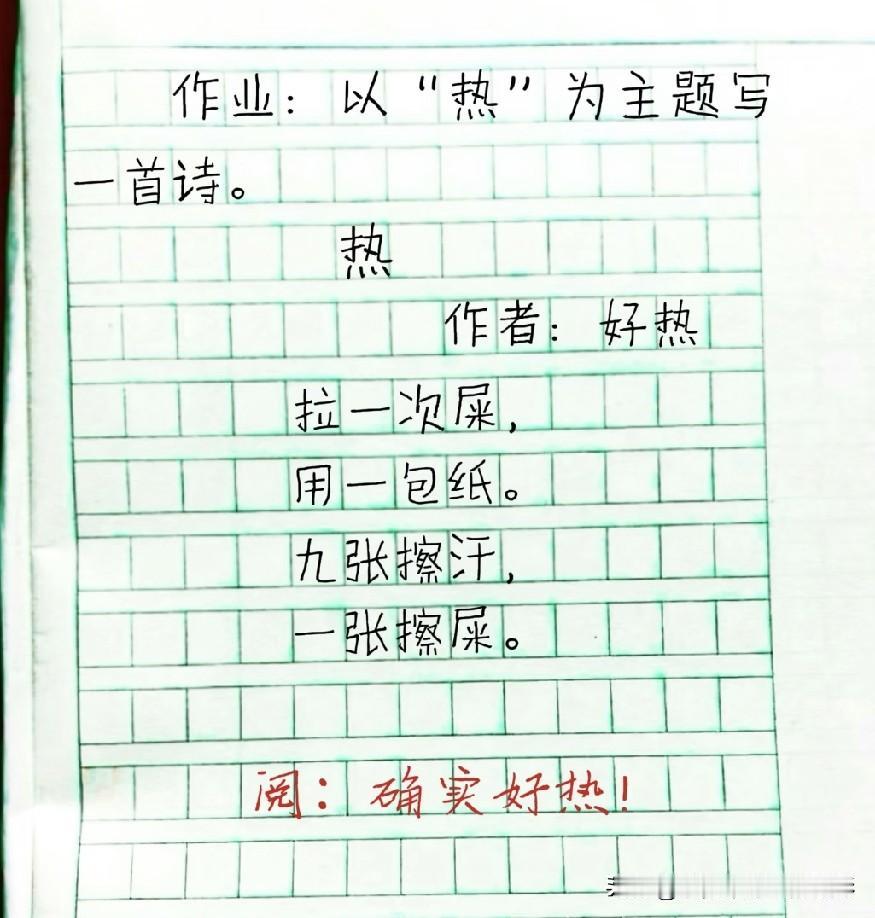 作业：以“热”为主题写
一首诗。
热
作者：好热
拉一次屎，
用一包纸。
九张擦汗，
一张擦屎。
阅：确实好热！